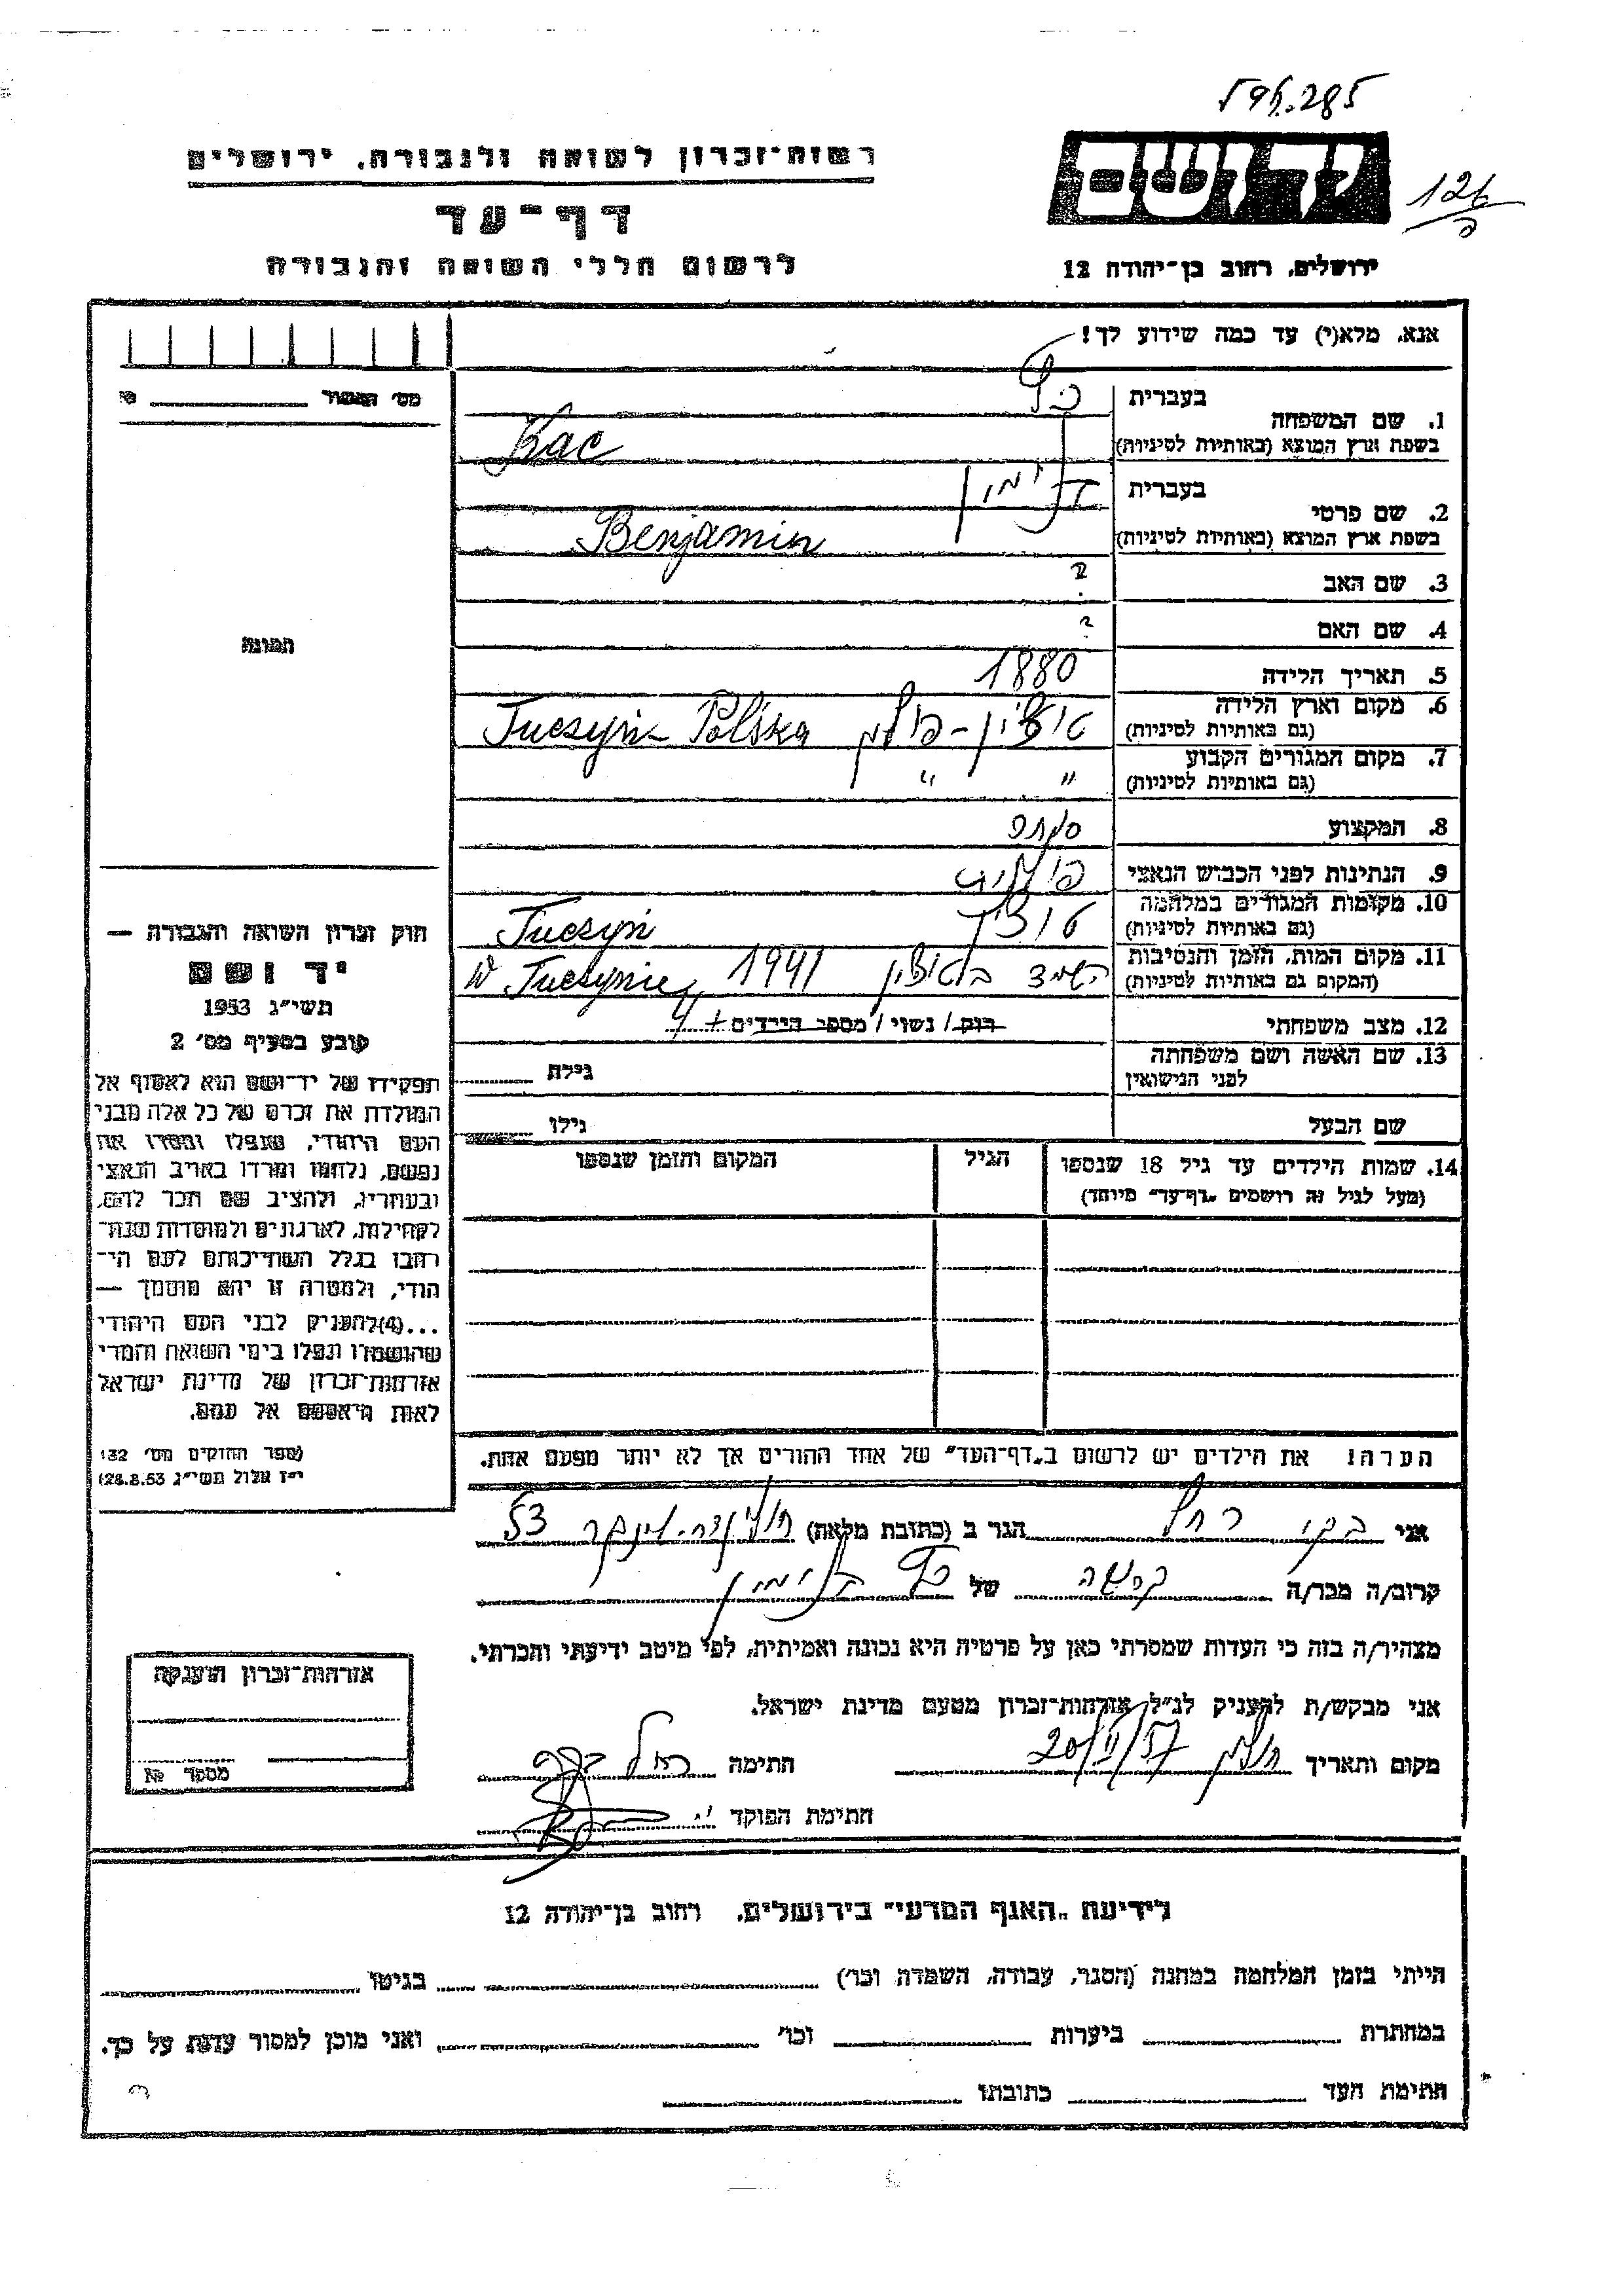 596.285
יד ושם
126
רשות-זכרון לשואה ולגבורה, ירושלים
דף-עד
לרשום חללי השואה והגבורה
ירושלים, רחוב בן-יהודה 12
אנא, מלא(י) עד כמה שידוע לך!
מס' האשור №
1. שם המשפחה בעברית כץ
בשפת ארץ המוצא (באותיות לטיניות) Kac
2. שם פרטי בעברית בנימין
בשפת ארץ המוצא (באותיות לטיניות) Benjamin
3. שם האב ?
4. שם האם ?
5. תאריך הלידה 1880
6. מקום וארץ הלידה (גם באותיות לטיניות) טוצין - פולין Tuczyń Polska
7. מקום המגורים הקבוע (גם באותיות לטיניות) " "
8. המקצוע סוחר
9. הנתינות לפני הכבוש הנאצי פולנית
10. מקומות המגורים במלחמה (גם באותיות לטיניות) טוצין Tuczyń
11. מקום המות, הזמן והנסיבות (המקום גם באותיות לטיניות) בטוצין 1941 W Tuczynie
12. מצב משפחתי רווק / נשוי / מספר הילדים + 4
13. שם האשה ושם משפחתה לפני הנישואין גילה
שם הבעל גילו
14. שמות הילדים עד גיל 18 שנספו הגיל המקום והזמן שנספו
(מעל לגיל זה רושמים "דף-עד" מיוחד)
תמונה
חוק זכרון השואה והגבורה —
יד ושם
תשי"ג 1953
קובע בסעיף מס' 2
תפקידו של יד-ושם הוא לאסוף אל
המולדת את זכרם של כל אלה מבני
העם היהודי, שנפלו ומסרו את
נפשם, נלחמו ומרדו באויב הנאצי
ובעוזריו, ולהציב שם וזכר להם,
לקהילות, לארגונים ולמוסדות שנח-
רבו בגלל השתייכותם לעם הי-
הודי, ולמטרה זו יהא מוסמך —
...(4) להעניק לבני העם היהודי
שהושמדו ונפלו בימי השואה והמרי
אזרחות-זכרון של מדינת ישראל
לאות היאספם אל עמם.
(ספר החוקים מס' 132
י"ז אלול תשי"ג 28.8.53)
הערה! את הילדים יש לרשום ב"דף-העד" של אחד ההורים אך לא יותר מפעם אחת.
אני רחל הגר ב (כתובת מלאה) 53
קרוב/ה מכר/ה של כץ בנימין
מצהיר/ה בזה כי העדות שמסרתי כאן על פרטיה היא נכונה ואמיתית, לפי מיטב ידיעתי והכרתי.
אני מבקש/ת להעניק לנ"ל אזרחות-זכרון מטעם מדינת ישראל.
מקום ותאריך חולון 20/II/57 חתימה רחל
חתימת הפוקד
אזרחות-זכרון הוענקה
מספר №
לידיעת "האגף המדעי" בירושלים, רחוב בן-יהודה 12
הייתי בזמן המלחמה במחנה (הסגר, עבודה, השמדה וכו') בגיטו
במחתרת ביערות וכו' ואני מוכן למסור עדות על כך.
חתימת העד כתובתו